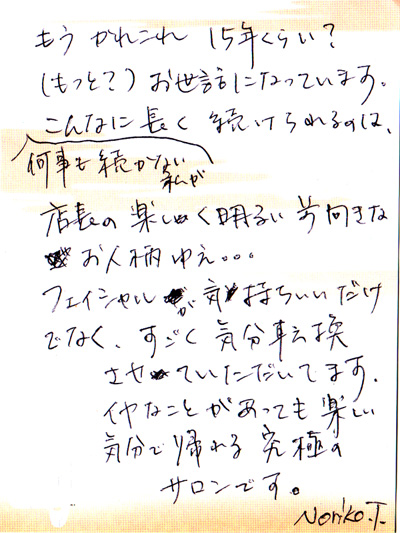 もうかれこれ 15年くらい?
(もっと?) お世話になっています。
こんなに長く続けられるのは、
何事も続かない
私が
店長の楽しく明るい前向きな
お人柄ゆえ...
フェイシャルが気持ちいいだけ
でなく、すごく気分転換
させていただいてます。
イヤなことがあっても楽しい
気分で帰れる究極の
サロンです。
Noriko.T.